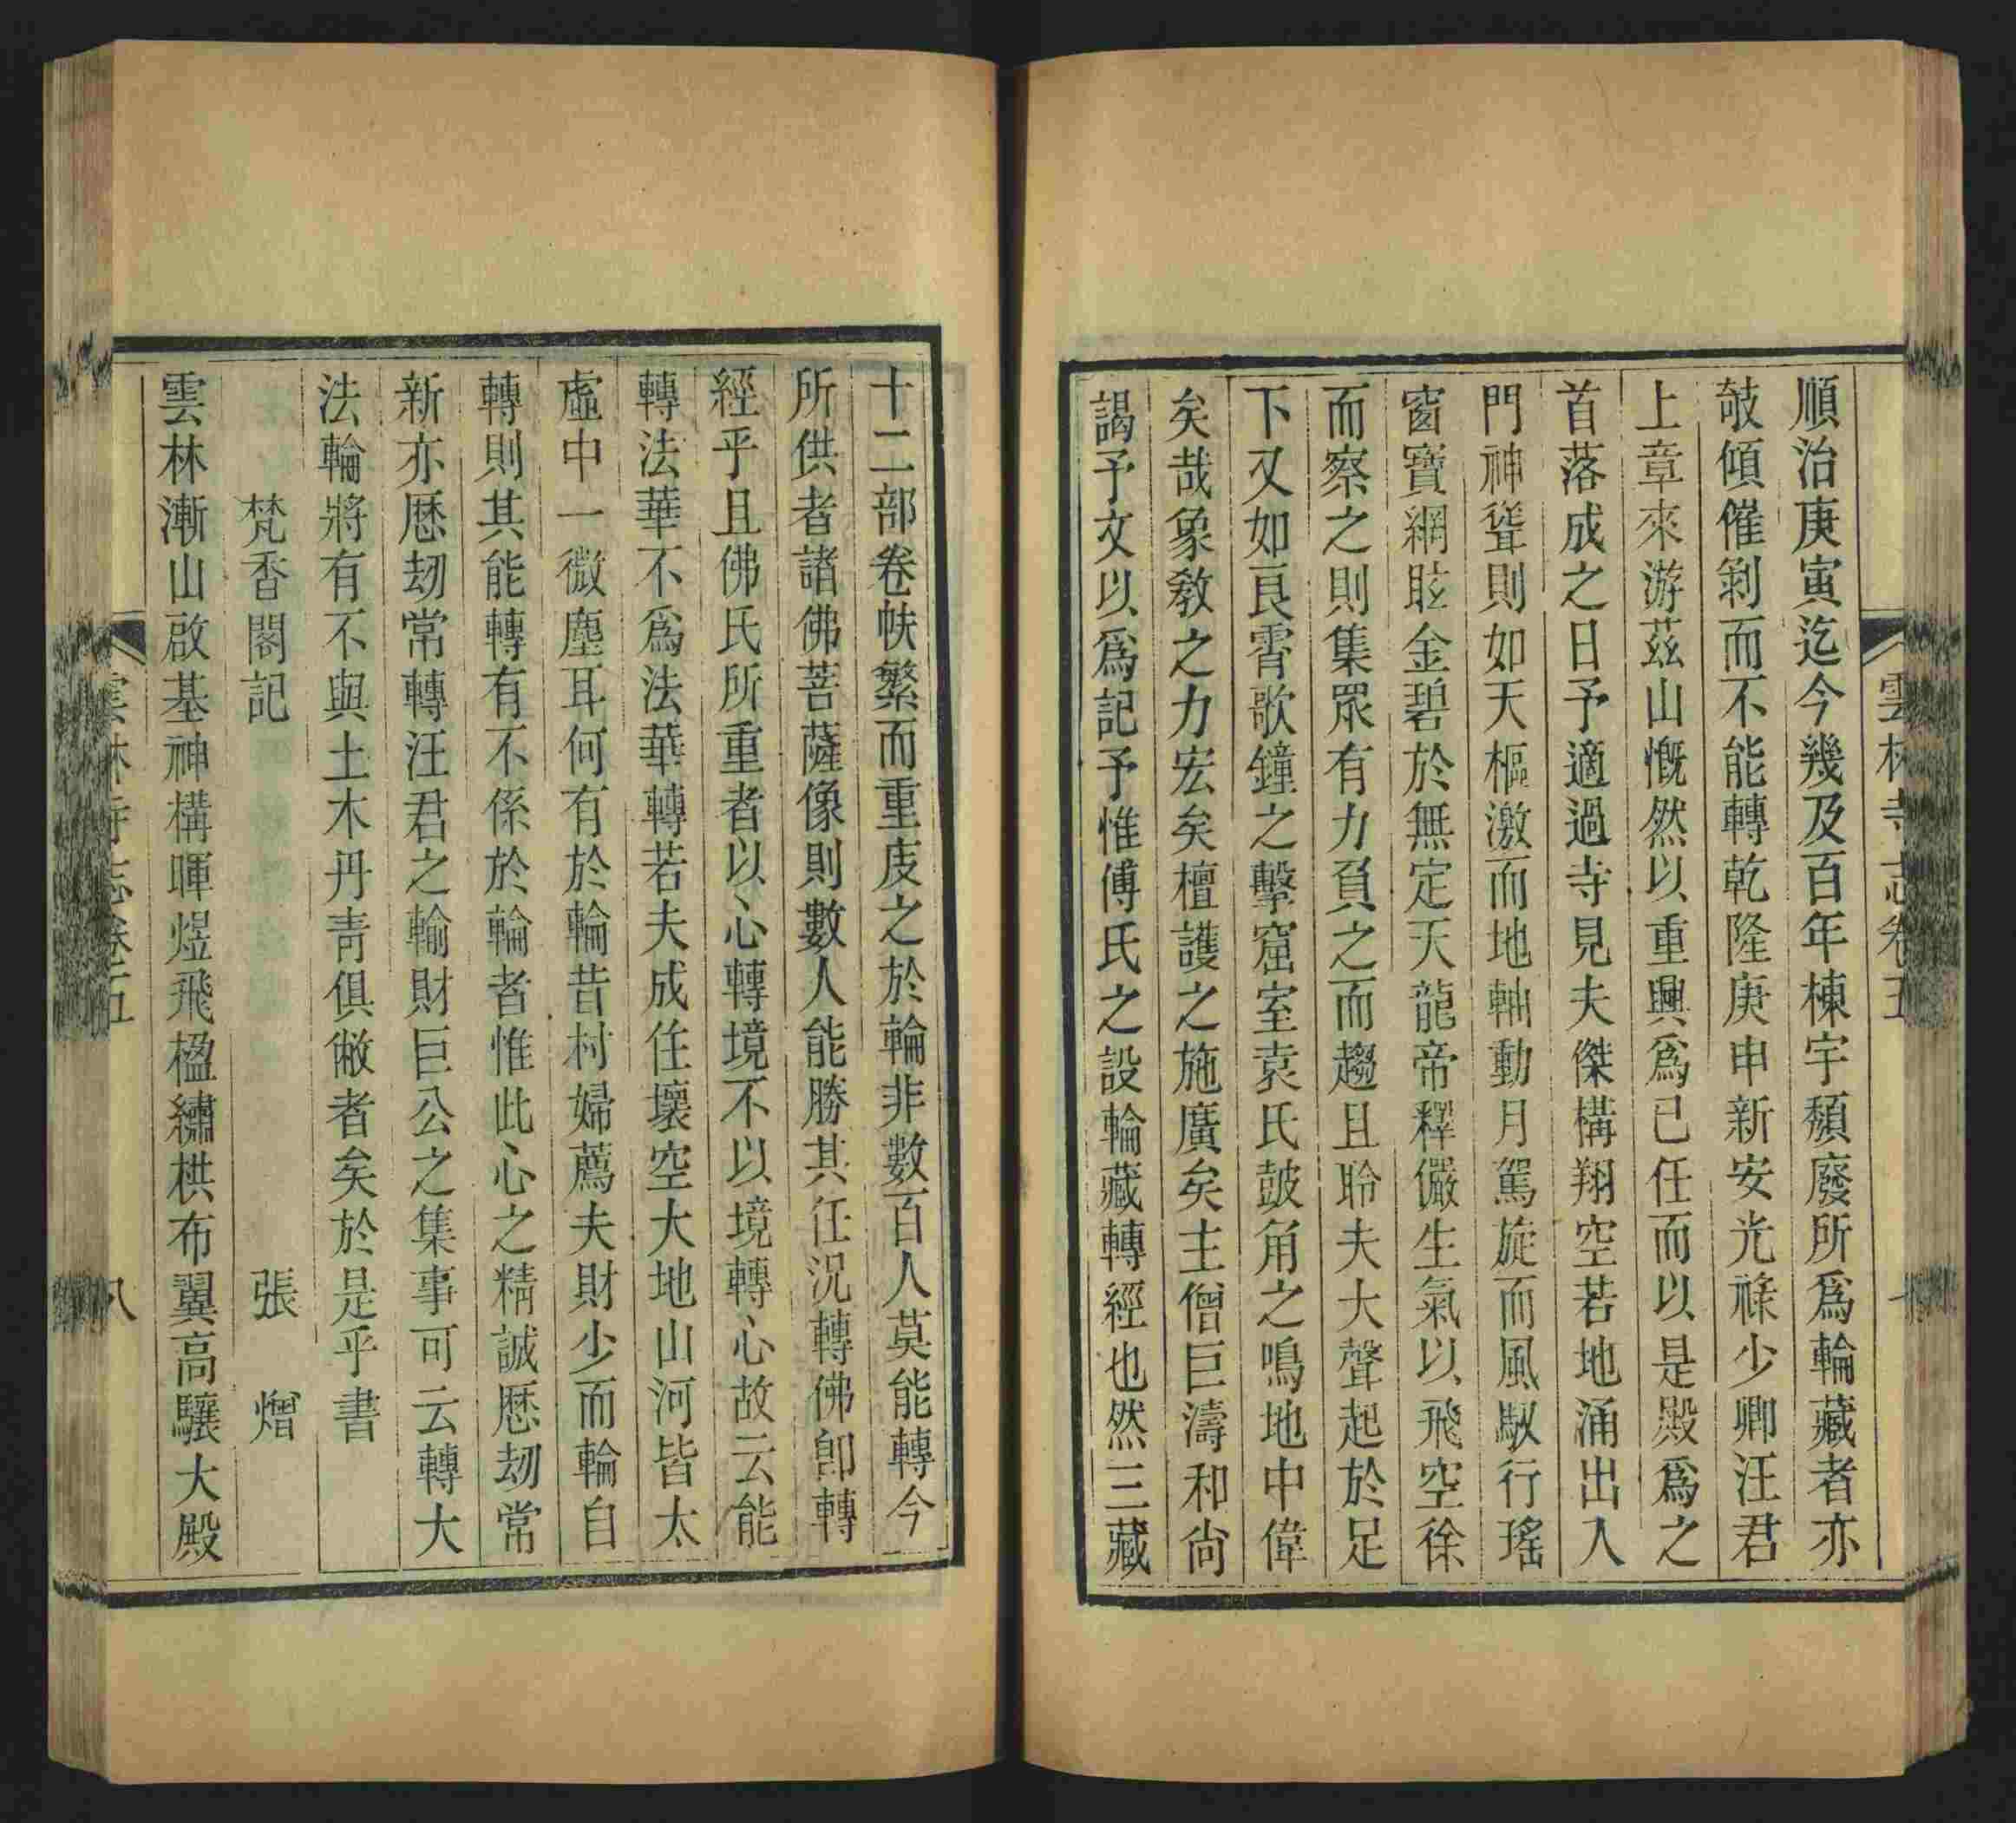 雲林寺志卷五
順治庚寅迄今幾及百年棟宇頹廢所爲輪藏者亦
攲傾催剝而不能轉乾隆庚申新安光祿少卿汪君
上章來游茲山慨然以重興爲己任而以是殿爲之
首落成之日予適過寺見夫傑構翔空若地涌出入
門神聳則如天樞激而地軸動月駕旋而風馭行瑤
窗寶網眩金碧於無定天龍帝釋儼生氣以飛空徐
而察之則集眾有力負之而趨且聆夫大聲起於足
下又如良霄歌鐘之擊窟室袁氏鼓角之鳴地中偉
矣哉象敎之力宏矣檀護之施廣矣主僧巨濤和尙
謁予文以爲記予惟傅氏之設輪藏轉經也然三藏
十二部卷帙繁而重庋之於輪非數百人莫能轉今
所供者諸佛菩薩像則數人能勝其任況轉佛卽轉
經乎且佛氏所重者以心轉境不以境轉心故云能
轉法華不爲法華轉若夫成住壞空大地山河皆太
虛中一微塵耳何有於輪昔村婦薦夫財少而輪自
轉則其能轉有不係於輪者惟此心之精誠歷劫常
新亦歷劫常轉汪君之輸財巨公之集事可云轉大
法輪將有不與土木丹靑俱敝者矣於是乎書
梵香閣記　張　熷
雲林漸山啟基神構暉煜飛楹繡栱布翼高驤大殿
雲林寺志卷五　八